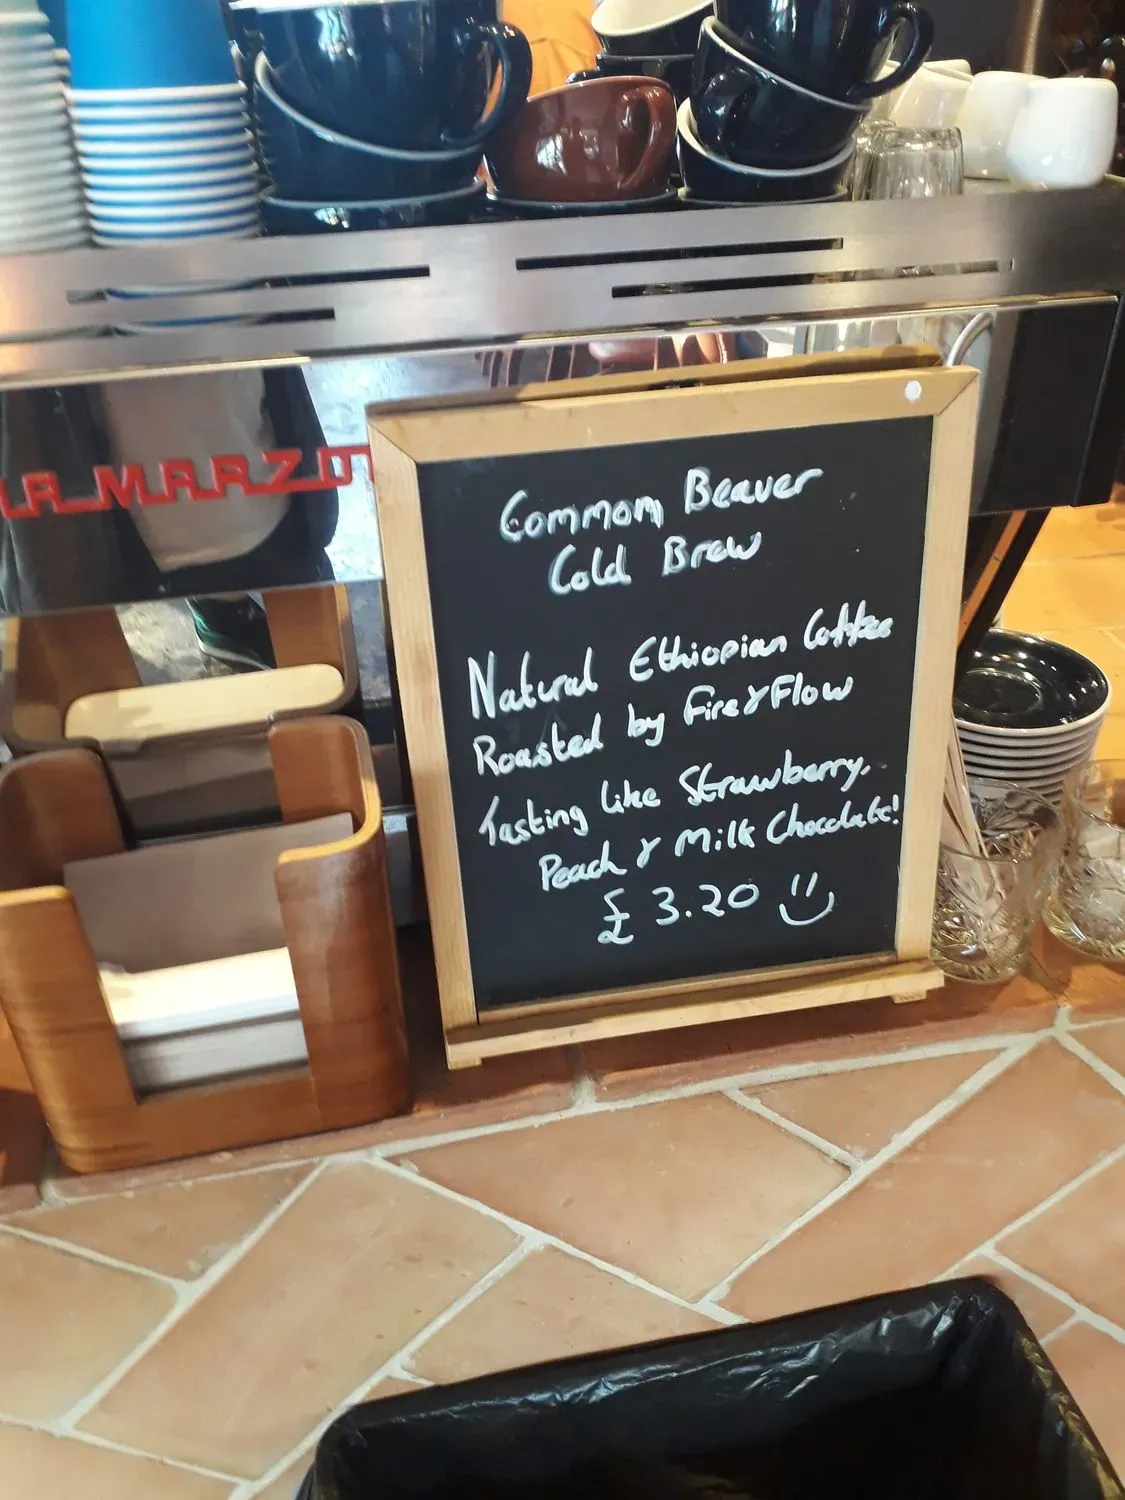 LA MARZO
Common Beaver
Cold Brew
Natural Ethiopian Coffee
Roasted by Fire & Flow
Tasting like Strawberry,
Peach & Milk Chocolate!
£3.20